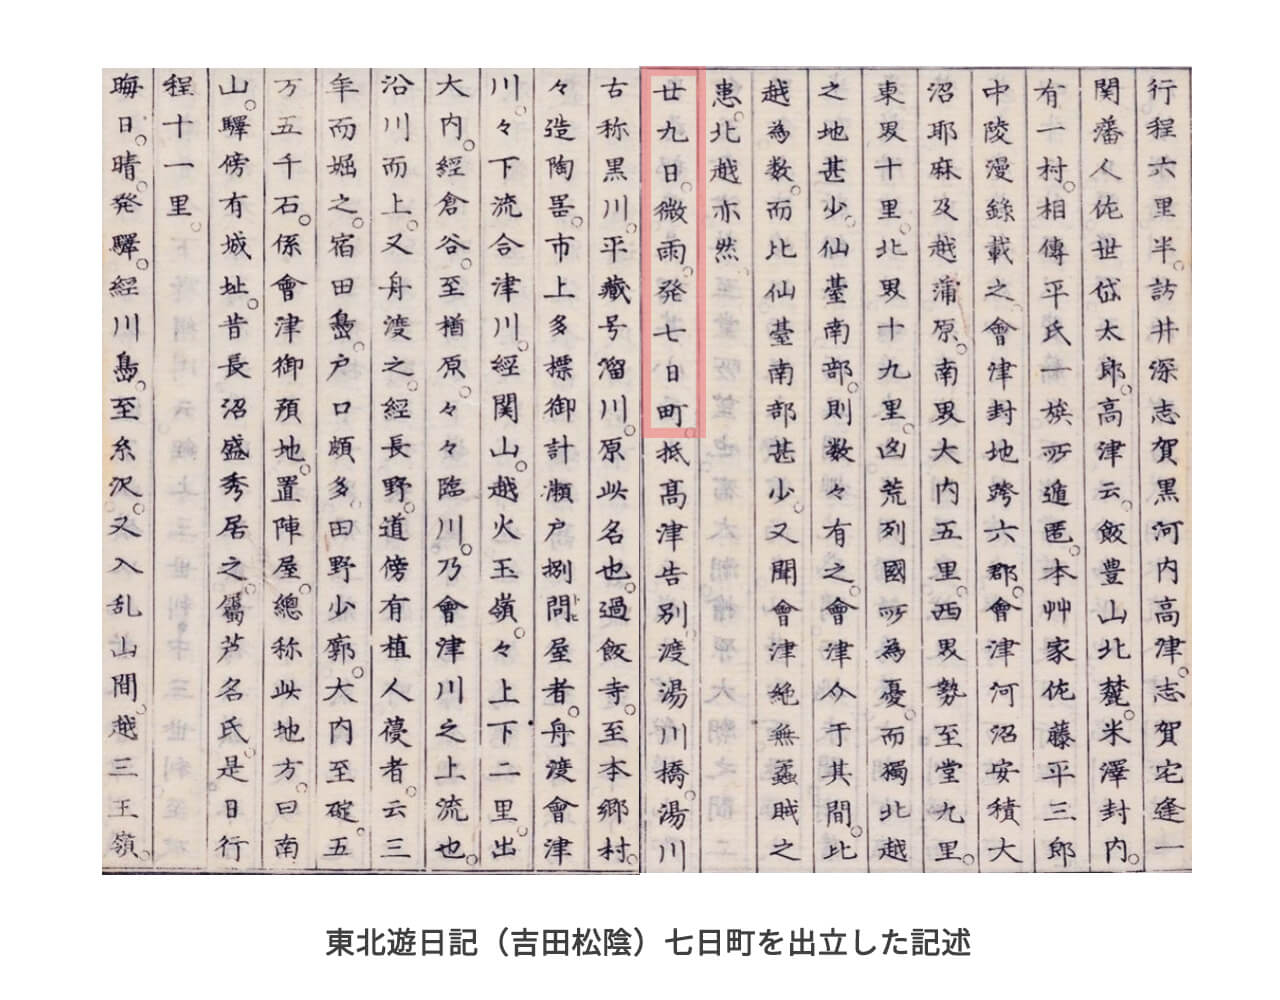 行程六里半。訪井深志賀黒河内高津。志賀宅逢一
関藩人佐世岱太郎。高津云。飯豊山北麓。米澤封内。
有一村。相傳平氏一族所遁匿。本艸家佐藤平三郎
中陵漫録載之。會津封地跨六郡。會津河沼安積大
沼耶麻及越蒲原。南界大内五里。西界勢至堂九里。
東界十里。北界十九里。凶荒列國所為憂。而獨北越
之地甚少。仙臺南部。則数々有之。會津介于其間。比
越為数。而比仙臺南部甚少。又聞會津絶無蟊賊之
患。北越亦然
廿九日。微雨。発七日町。抵高津告別。渡湯川橋。湯川
古称黒川。平蔵号溜川。原此名也。過飯寺。至本郷村。
々造陶器。市上多標御計瀬戸捌問屋者。舟渡會津
川。々下流合津川。經関山。越火玉嶺。々上下二里。出
大内。經倉谷。至楢原。々々臨川。乃會津川之上流也。
沿川而上。又舟渡之。經長野。道傍有植人葠者。云三
年而堀之。宿田島。戸口頗多。田野少廓。大内至碇。五
万五千石。係會津御預地。置陣屋。總称此地方。曰南
山。驛傍有城址。昔長沼盛秀居之。属芦名氏。是日行
程十一里。
晦日。晴。発驛。經川島。至糸沢。又入乱山間。越三王嶺。
東北遊日記（吉田松陰）七日町を出立した記述